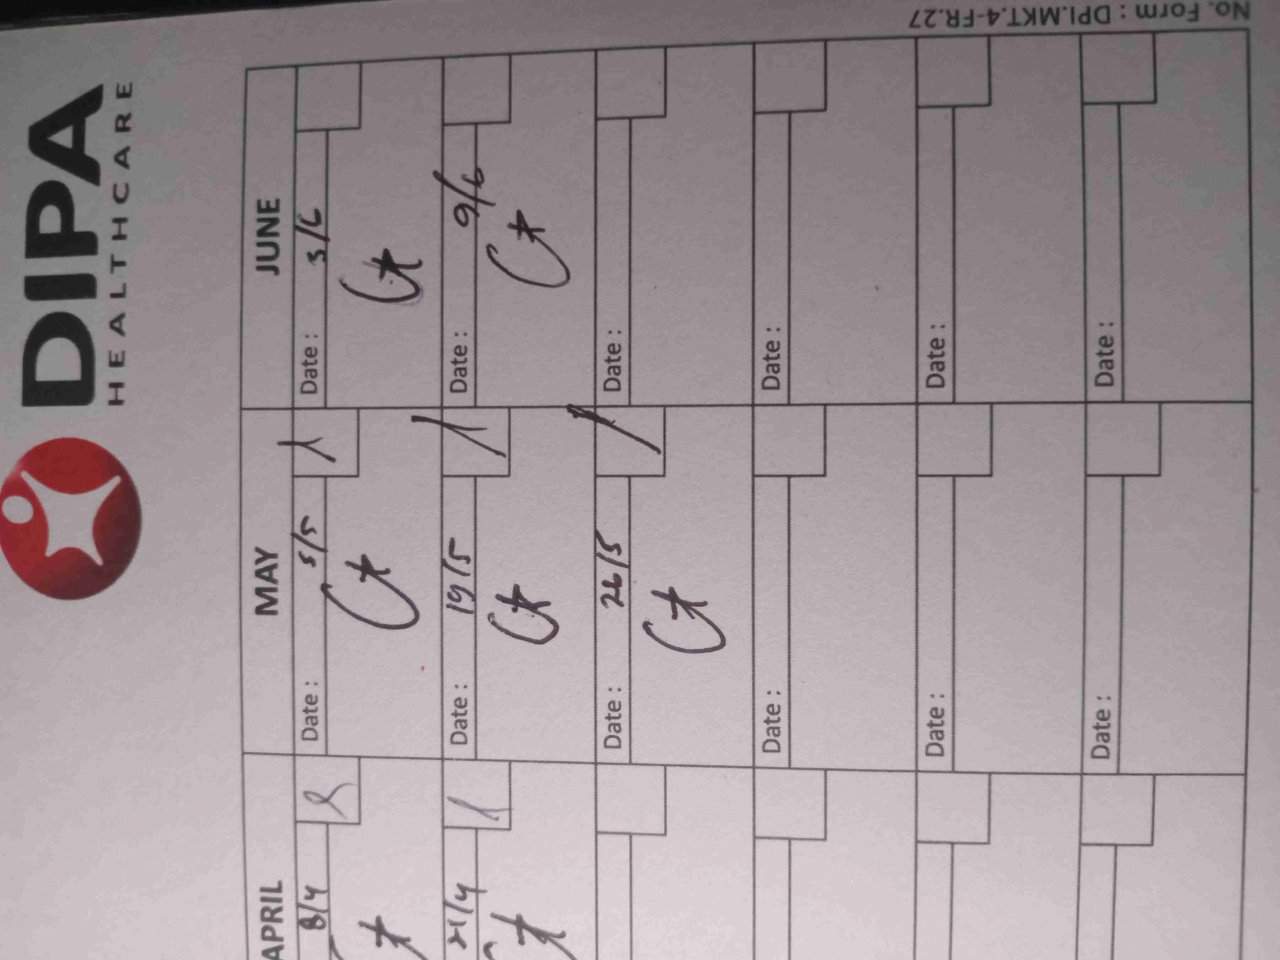 DIPA
HEALTHCARE
APRIL
8/4
21/4
MAY
Date : 5/5
Date : 19/5
Date : 26/5
Date :
Date :
Date :
JUNE
Date : 3/6
Date : 9/6
Date :
Date :
Date :
Date :
No. Form : DPI.MKT.4-FR.27